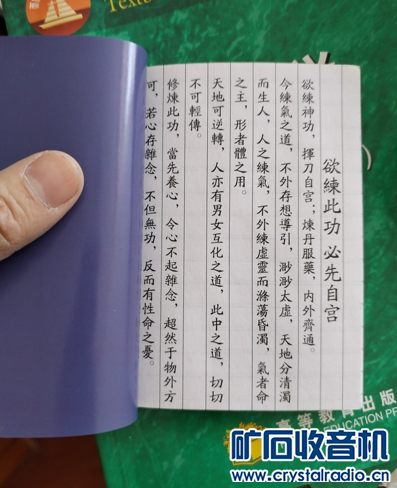 Texto
欲練此功 必先自宫
欲練神功，揮刀自宫；煉丹服藥，内外齊通。
今練氣之道，不外存想導引，渺渺太虛，天地分清濁
而生人，人之練氣，不外練虛靈而滌蕩昏濁，氣者命
之主，形者體之用。
天地可逆轉，人亦有男女互化之道，此中之道，切切
不可輕傳。
修煉此功，當先養心，令心不起雜念，超然于物外方
可，若心存雜念，不但無功，反而有性命之憂。
高等教育出版
EDUCATION PRE
矿石收音机
www.crystalradio.cn